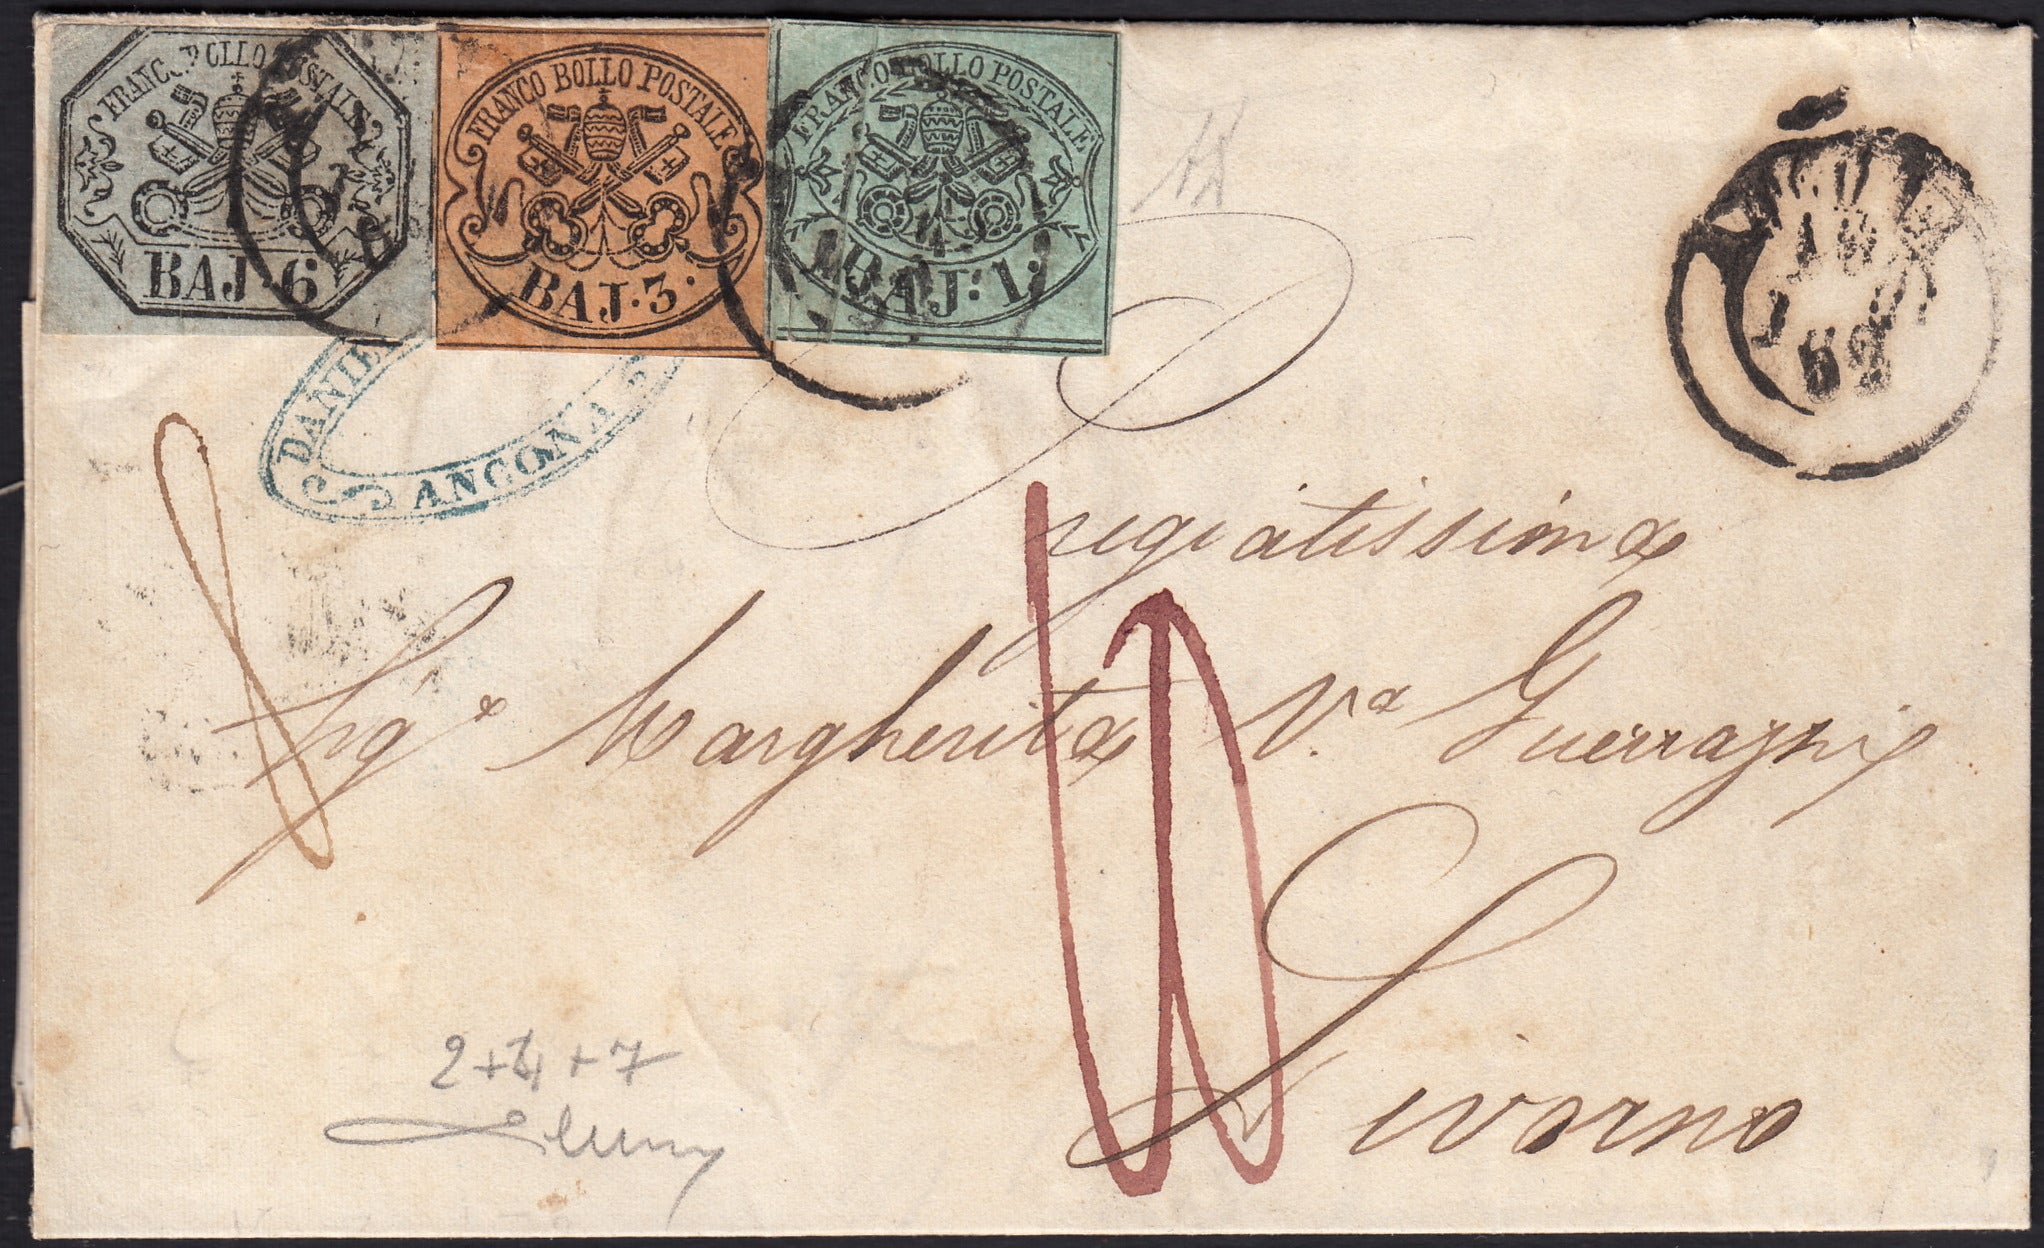 FRANCO BOLLO POSTALE
BAJ·6
FRANCO BOLLO POSTALE
BAJ·3·
FRANCO BOLLO POSTALE
BAJ:1:
ANCONA
18
52
Pregiatissima
Sig.ª Margherita V.ª Guerrazzi
Livorno
2+4+7